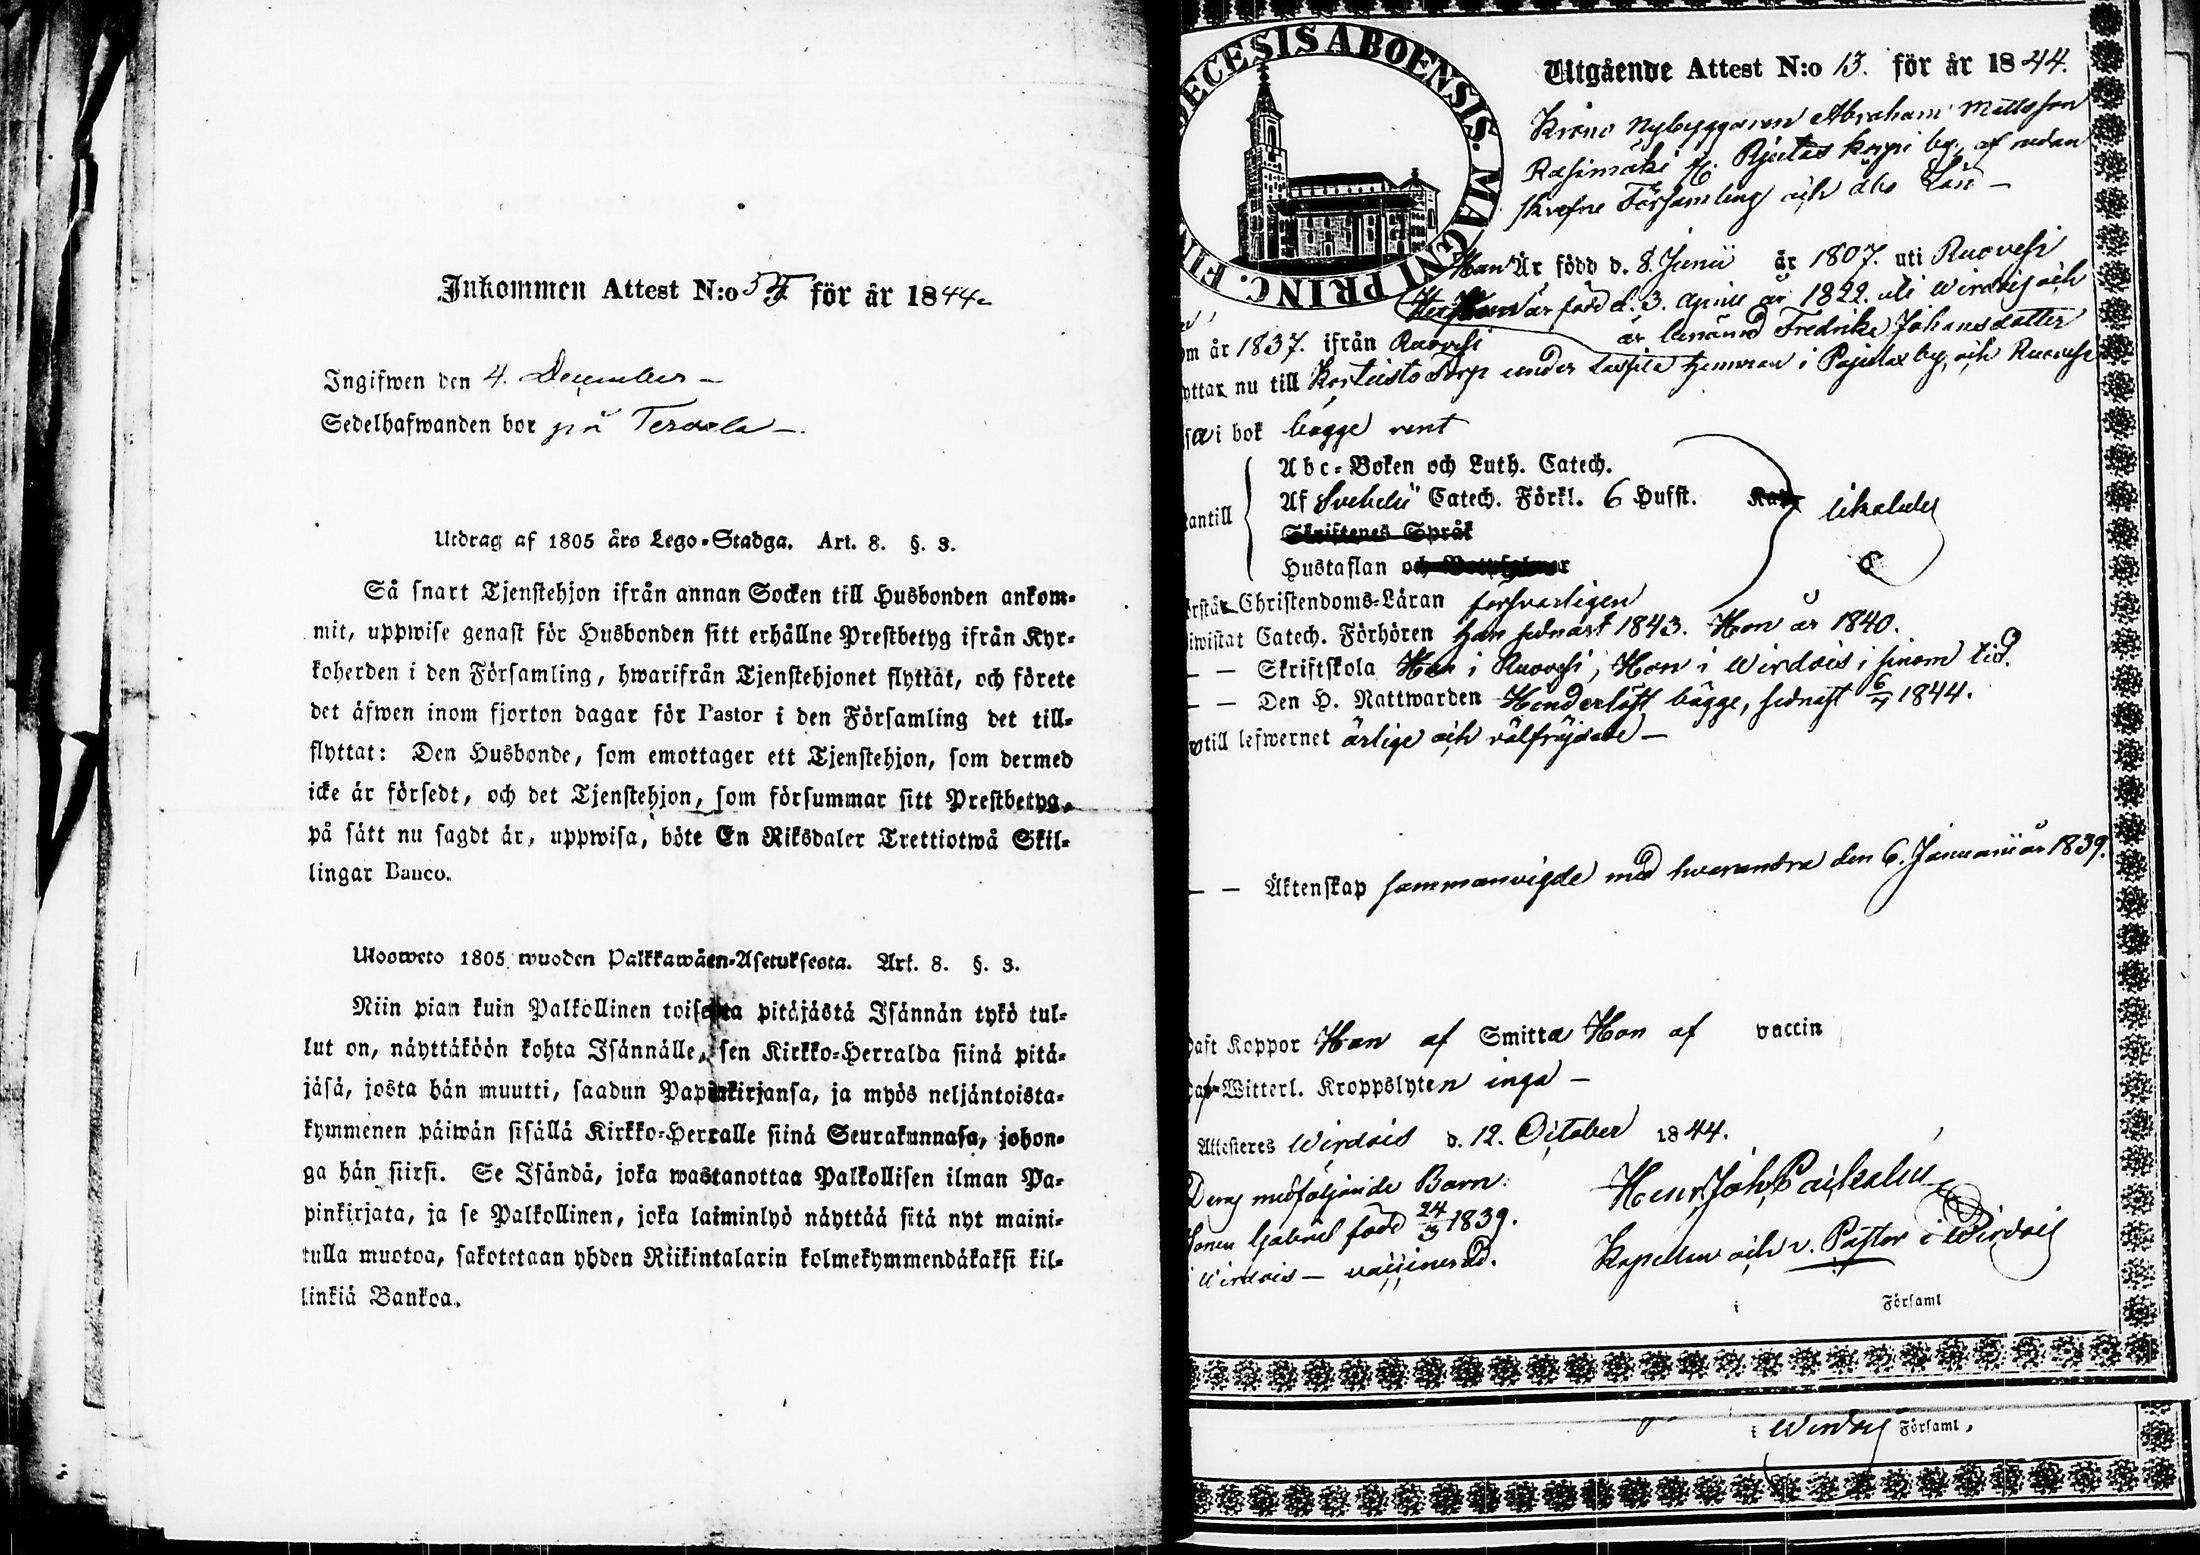 Inkommen Attest N:o 54. för år 1844.
Ingifwen den 4. December –
Sedelhafwanden bor på Tervola –
Utdrag af 1805 års Lego-Stadga. Art. 8. §. 3.
Så snart Tjenstehjon ifrån annan Socken till Husbonden ankom-
mit, uppwise genast för Husbonden sitt erhållne Prestbetyg ifrån Kyr-
koherden i den Församling, hwarifrån Tjenstehjonet flyttat, och förete
det äfwen inom fjorton dagar för Pastor i den Församling det till-
flyttat: Den Husbonde, som emottager ett Tjenstehjon, som dermed
icke är försedt, och det Tjenstehjon, som försummar sitt Prestbetyg,
på sätt nu sagdt är, uppwisa, böte En Riksdaler Trettiotwå Skil-
lingar Banco.
Ulosweto 1805 wuoden Palkkawäen-Asetuksesta. Art. 8. §. 3.
Niin pian kuin Palkollinen toisesta pitäjästä Isännän tykö tul-
lut on, näyttäköön kohta Isännälle, sen Kirkko-Herralda siinä pitä-
jäsä, josta hän muutti, saadun Papinkirjansa, ja myös neljäntoista-
kymmenen päiwän sisällä Kirkko-Herralle siinä Seurakunnasa, johon-
ga hän siirsi. Se Isändä, joka wastanottaa Palkollisen ilman Pa-
pinkirjata, ja se Palkollinen, joka laiminlyö näyttää sitä nyt maini-
tulla muotoa, sakotetaan yhden Riikintalarin kolmekymmendäkaksi kil-
linkiä Bankoa.
DECESIS ABOENSIS. MAGNI PRINC. FIN
Utgående Attest N:o 13. för år 1844.
Krono Nybyggaren Abraham Mattsson
Rasimäki fr. Pjutas korpi by, af nedan
skrefne Församling och Åbo Län –
Han Är född d. 8. Junii år 1807. uti Ruovesi
är född d. 3. April år 1822. uti Wirdois och
är benämnd Fredrika Johansdotter
om år 1837. ifrån Ruovesi
yttar nu till Korteisto Torp under Hemman i Pajulax by, och Ruovesi
sa i bok bägge rent
Abc-Boken och Luth. Catech.
Af Svebelii Catech. Förkl. 6 Hufst.
antill
Skriftenes Språk
Hustaflan
örstå Christendoms-Läran försvarligen
iwistat Catech. Förhören Han sednast 1843. Hon år 1840.
– – Skriftskola Han i Ruovesi, Hon i Wirdois i sinom tid.
– – Den H. Nattwarden Hinderlöst bägge, sednast 6/7 1844.
till lefwernet ärlige och välfräjdade –
– – Äktenskap sammanvigde med hvarandra den 6. Januarii år 1839.
haft Koppor Han af Smitta Hon af vaccin
Witterl. Kroppslyten inga –
Attesteres Wirdois d. 12. October 1844.
Deras medföljande Barn:
Sonen Gabriel född 24/3 1839.
i Wirdois – vaccinerad.
Henr. Joh. Paikalin
Kapellan och v. Pastor i Wirdois
i Församl
i Wirdois Församl.